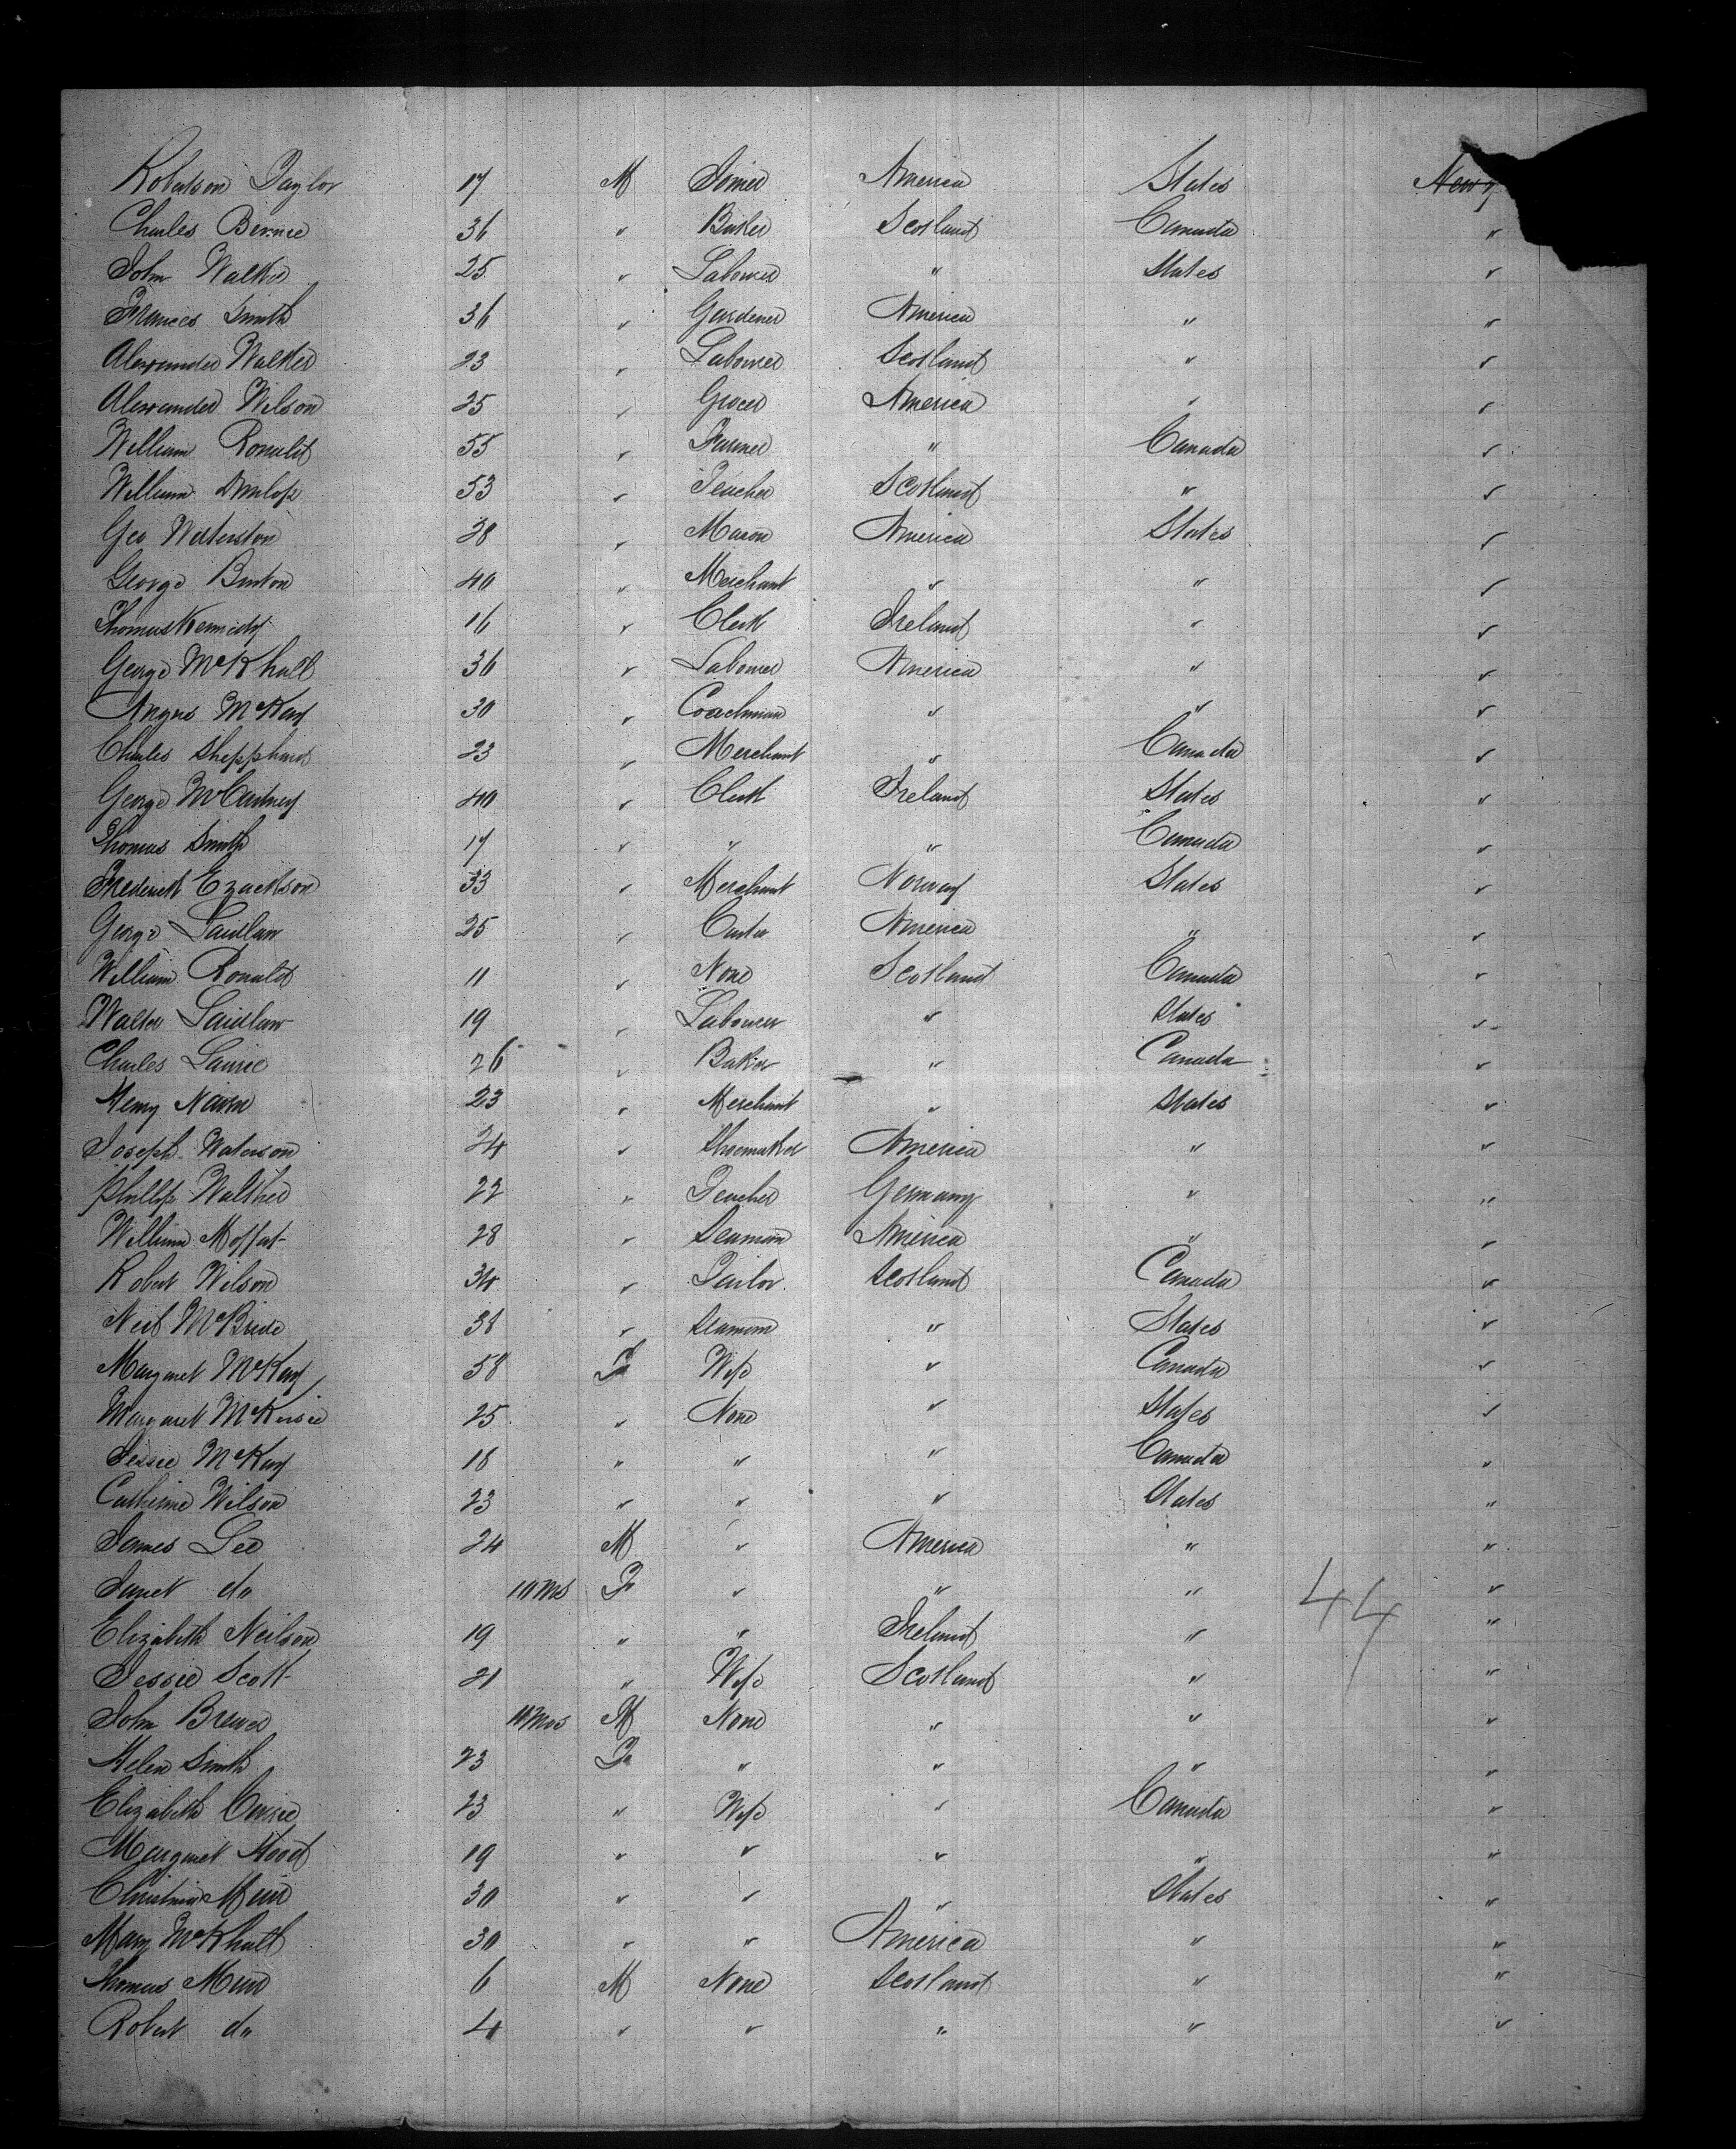 Robertson Taylor 17 M Joiner America States New Y
Charles Bernie 36 " Butler Scotland Canada "
John Walker 25 " Labourer " States "
Frances Smith 36 " Gardener America " "
Alexander Walker 23 " Labourer Scotland " "
Alexander Wilson 25 " Grocer America " "
William Ronald 55 " Farmer " Canada "
William Dunlop 53 " Teacher Scotland " "
Geo Waterston 28 " Mason America States "
George Burton 40 " Merchant " " "
Thomas Kennedy 16 " Clerk Ireland " "
George McKhall 36 " Labourer America " "
Angus McKay 30 " Coachman " " "
Charles Shepphard 23 " Merchant " Canada "
George McCartney 40 " Clerk Ireland States "
Thomas Smith 17 " " " Canada "
Frederick Ezackson 33 " Merchant Norway States "
George Laidlaw 25 " Carter America " "
William Ronald 11 " None Scotland Canada "
Walter Laidlaw 19 " Labourer " States "
Charles Laurie 26 " Baker " Canada "
Henry Nairn 23 " Merchant " States "
Joseph Waterson 24 " Shoemaker America " "
Phillip Walther 22 " Teacher Germany " "
William Moffat 28 " Seaman America " "
Robert Wilson 34 " Tailor Scotland Canada "
Neil McBride 38 " Seaman " States "
Margaret McKay 58 F Wife " Canada "
Margaret McKersie 25 " None " States "
Jessie McKay 18 " " " Canada "
Catherine Wilson 23 " " " States "
James Lee 24 M " America " "
Janet do 10 Ms F " " " "
44
Elizabeth Neilson 19 " " Ireland " "
Jessie Scott 21 " Wife Scotland " "
John Brewer 10 Mos M None " " "
Helen Smith 23 F " " " "
Elizabeth Currie 23 " Wife " Canada "
Margaret Hood 19 " " " " "
Christina Muir 30 " " " States "
Mary McKhall 30 " " America " "
Thomas Muir 6 M None Scotland " "
Robert do 4 " " " " "